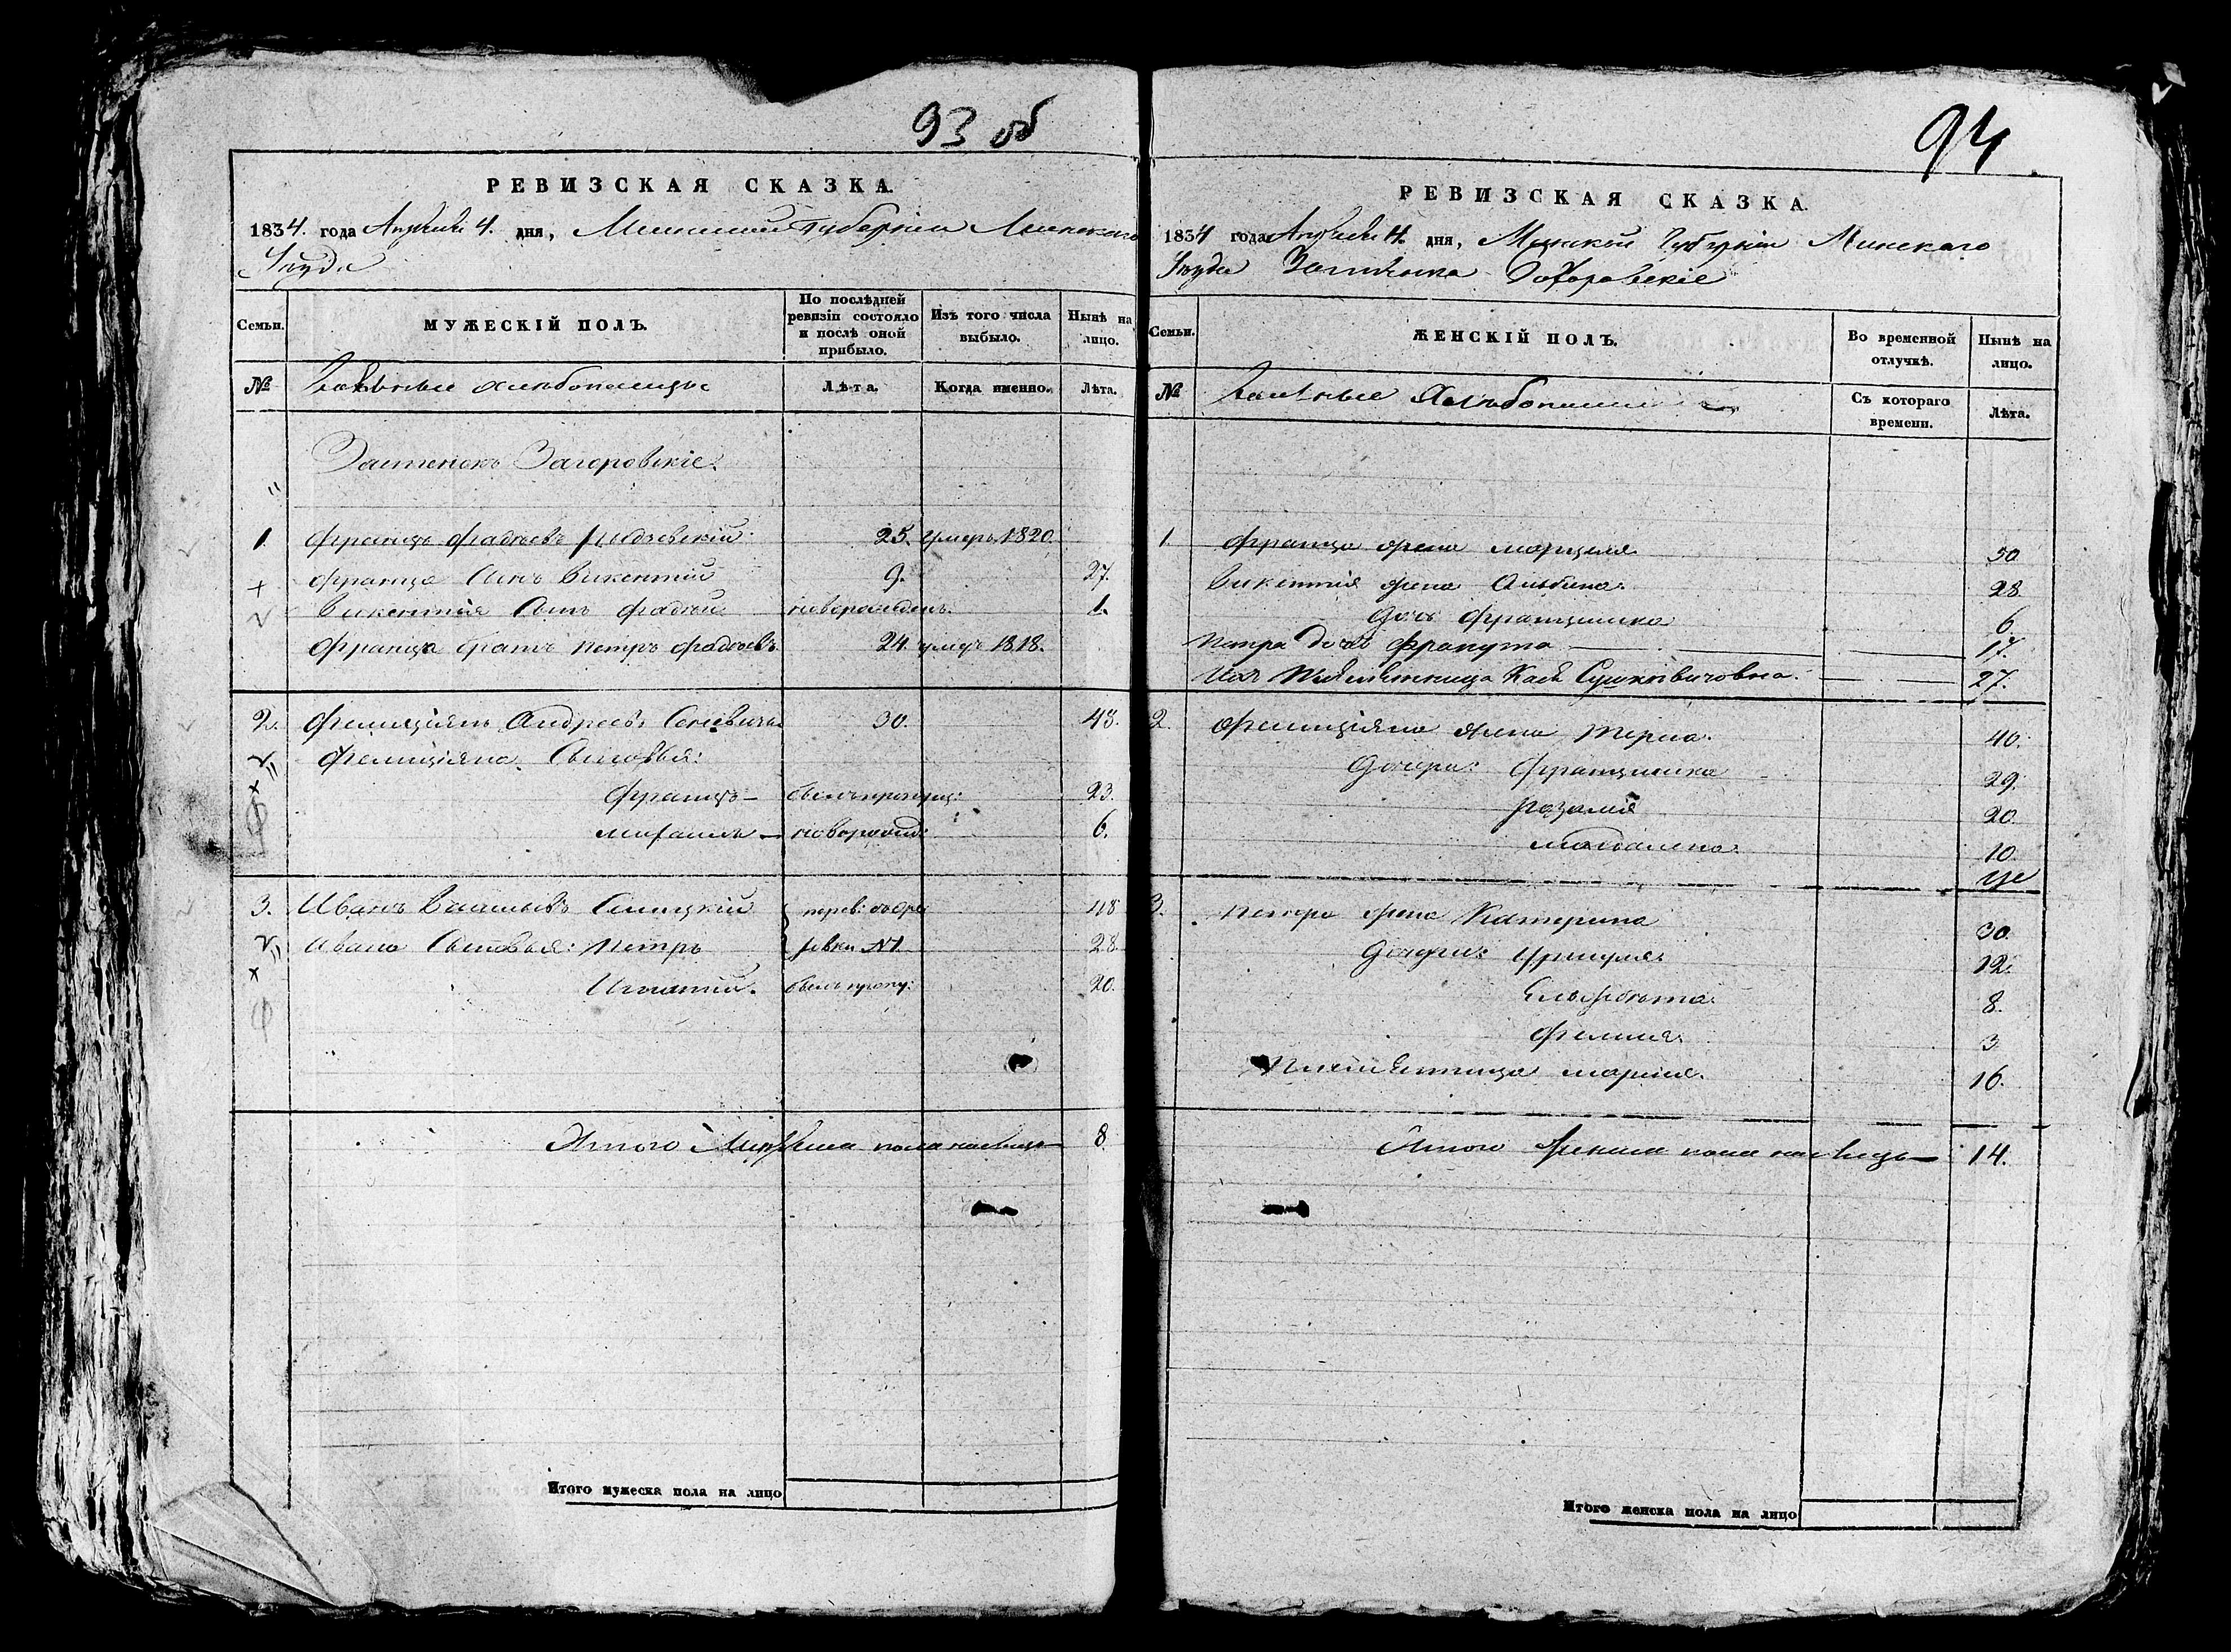 93 об
РЕВИЗСКАЯ СКАЗКА.
1834. года Апреля 4. дня, Минской Губерніи Минскаго
Уѣзда
Семьи.
МУЖЕСКІЙ ПОЛЪ.
По послѣдней ревизіи состояло и послѣ оной прибыло.
Изъ того числа выбыло.
Нынѣ на лицо.
№ Вольные хлѣбопашцы
Лѣта.
Когда именно.
Лѣта.
Застенокъ Загоровскіе.
1. Францъ Фадѣевъ 25. умеръ 1820.
Франца Сынъ Викентій 9. 27.
Викентія Сынъ Фадѣй новорожденъ. 1.
Франца братъ Петръ Фадѣевъ 24. умеръ 1818.
2. Фелиціянъ Андреевъ 30. 48.
Фелиціяна Сыновья:
Францъ — былъ пропущ: 23.
Михаилъ — новорожд: 6.
3. Иванъ 48
Ивана Сыновья: Петръ 28
Игнатій. былъ пропу: 20.
Итого Мужеска пола налицо 8.
Итого мужеска пола на лицо
94
РЕВИЗСКАЯ СКАЗКА.
1834 года Апреля 4. дня, Минской Губерніи Минскаго
Уѣзда Застѣнка
Семьи.
ЖЕНСКІЙ ПОЛЪ.
Во временной отлучкѣ.
Нынѣ на лицо.
№ Вольные Хлѣбопашцы
Съ котораго времени.
Лѣта.
1. Франца жена Марцеля 50
Викентія жена Альбина. 28
Дочь Францишка 6.
Петра дочь Франута 17.
Ихъ племянница Касѣ Сушкевичовна. 27.
2. Фелиціяна жена Тереса. 40.
Дочери: Францишка 29.
Розалія 20.
Магдалена. 10.
3. Петра жена Катерина 30.
Дочери: Уршуля. 12.
Ельжбѣта. 8.
Фелиція. 3.
Племянница Марія. 16.
Итого Женска пола налицо — 14.
Итого женска пола на лицо